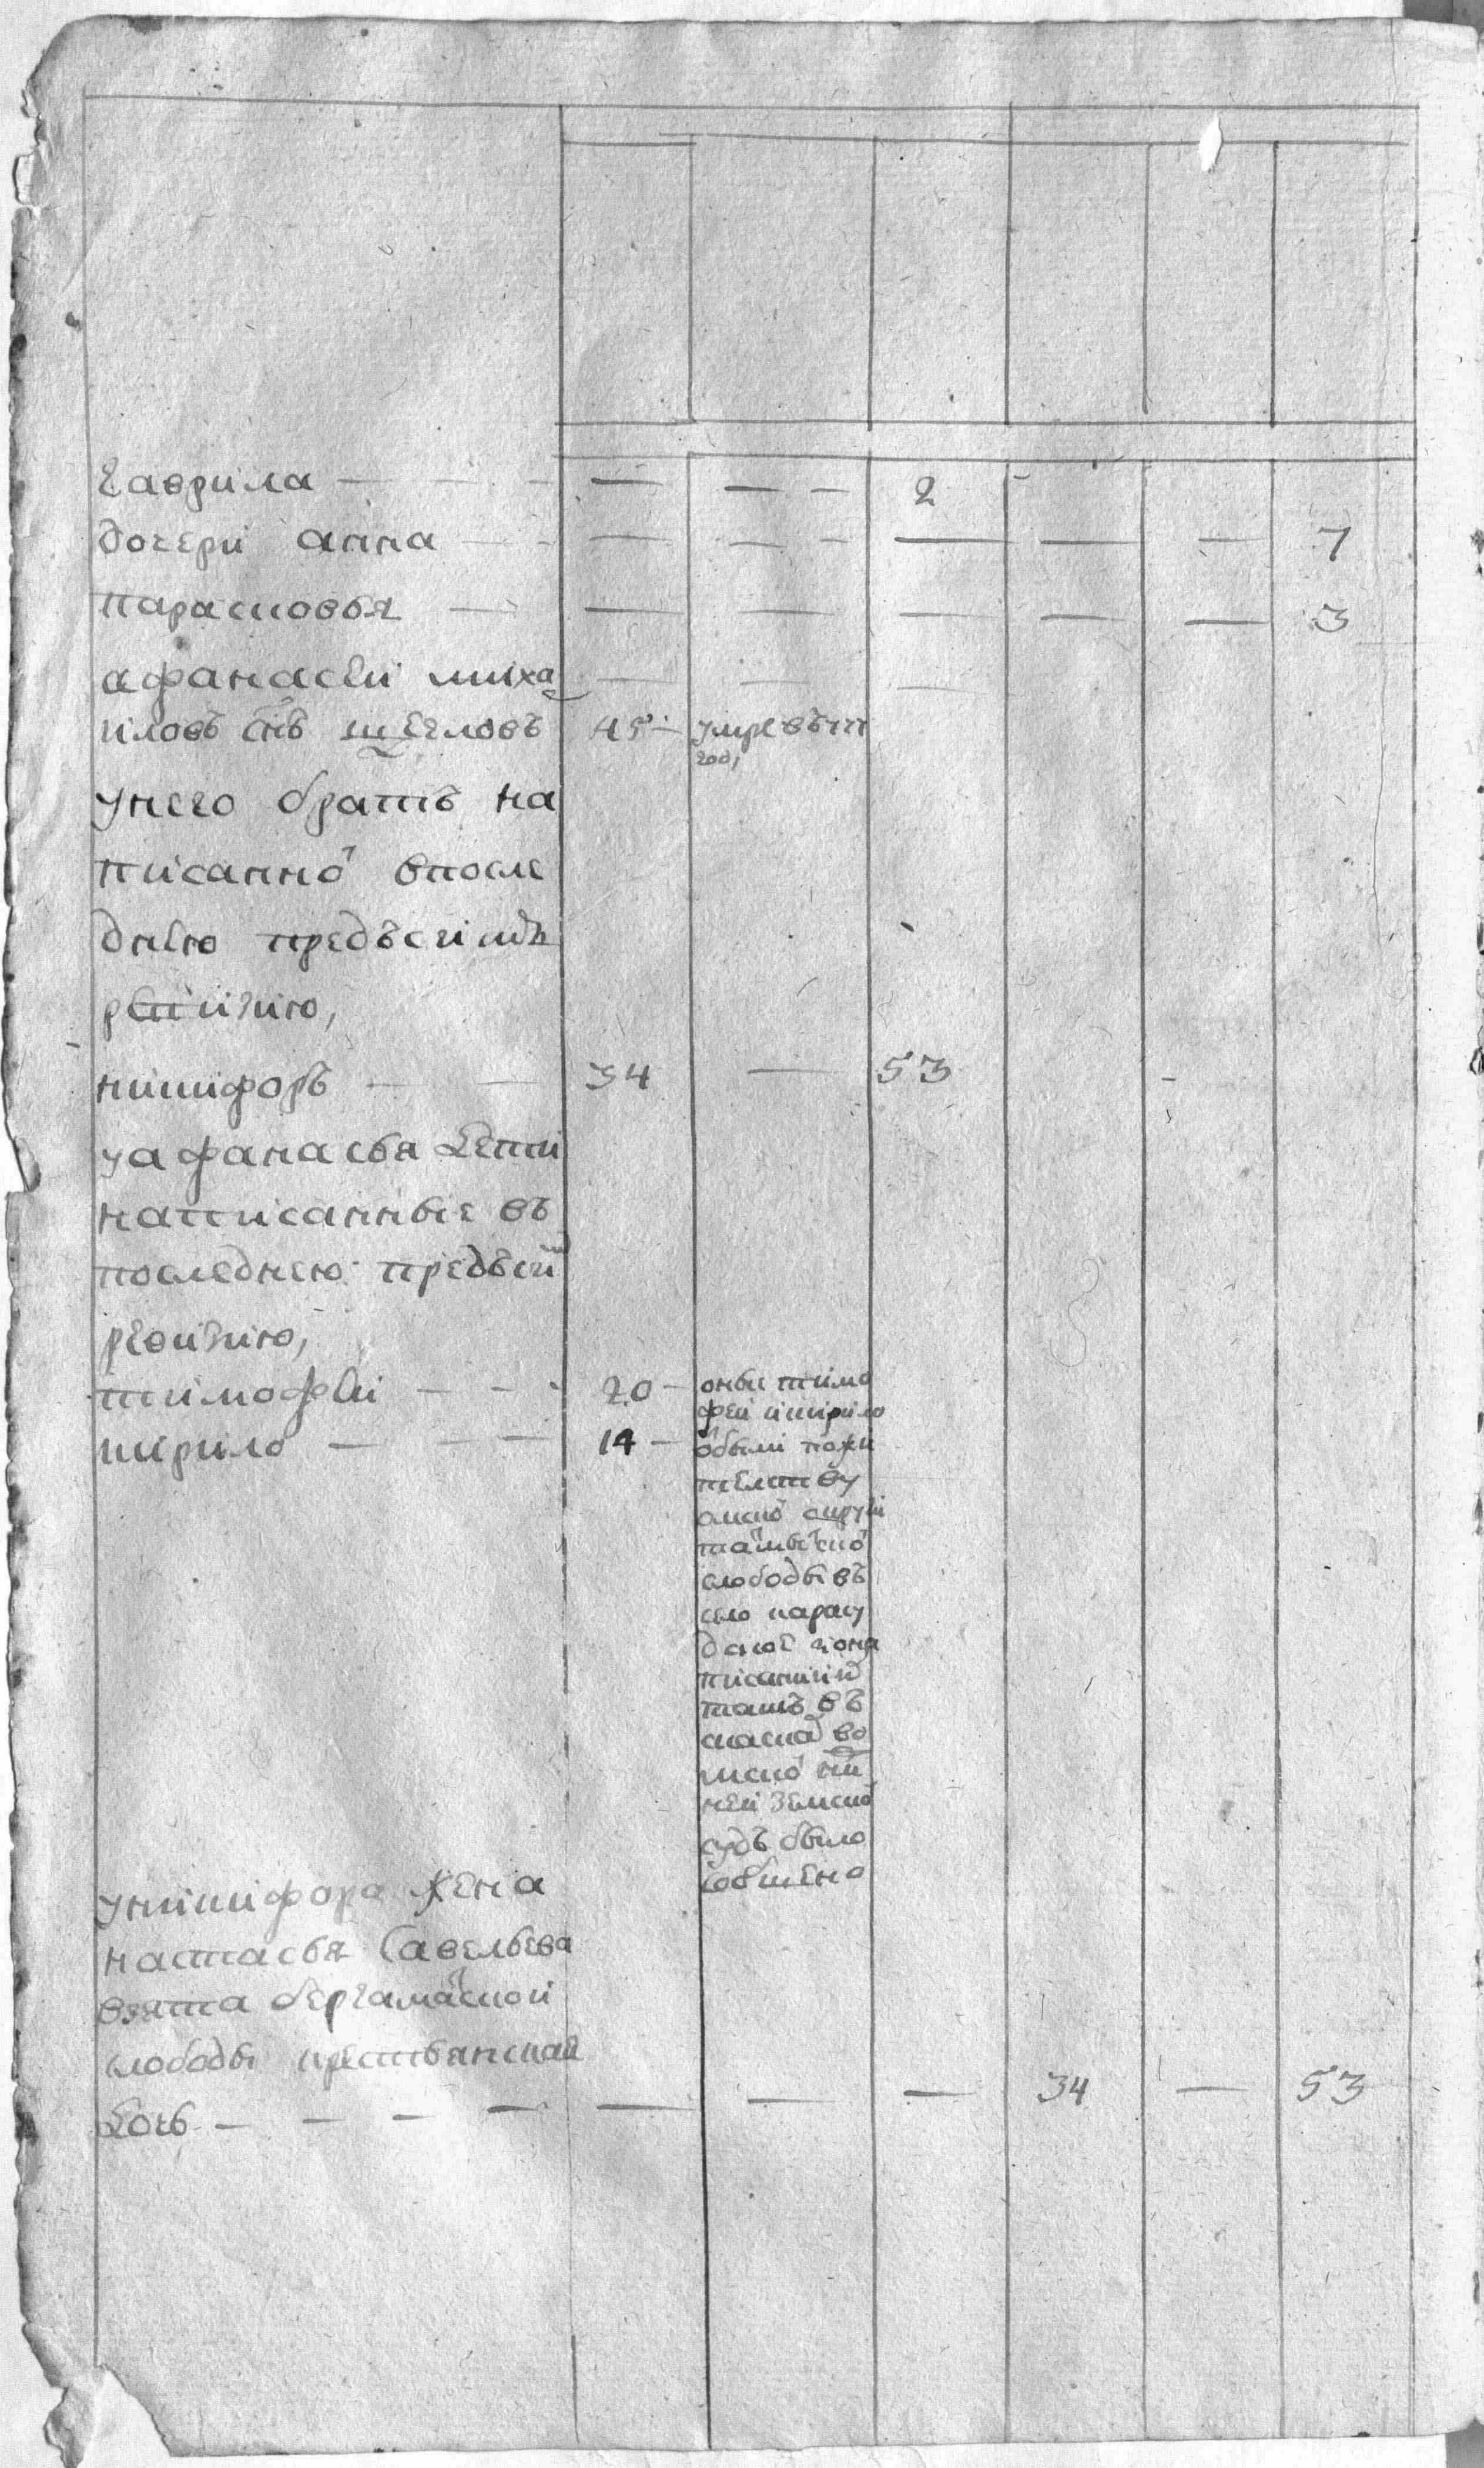 гаврила — — — — — — 2
дочери анна — — — — — — — — 7
парасковья — — — — — — 3
афанасеи миха — — —
иловъ снъ щегловъ 45 — умре въ
год,
унего братъ на
писанно впосле
днею предъсеи
ревизию,
никифоръ — — 34 — 53
уафанасья дети
написанные въ
последнею предъсеи
ревизию,
тимофеи — — 20 —
кирило — — 14 —
оные тимо
феи икирило
обыли пожи
телству
омско округи
слободы въ
село карасу
дское и она
писании
тамъ въ
оклад во
омско ни
неи земско
судъ было
сообщено
уникифора жена
настасья савельева
взята бергамацкои
слободы крестьянская
дочь — — — — — — — 34 — 53